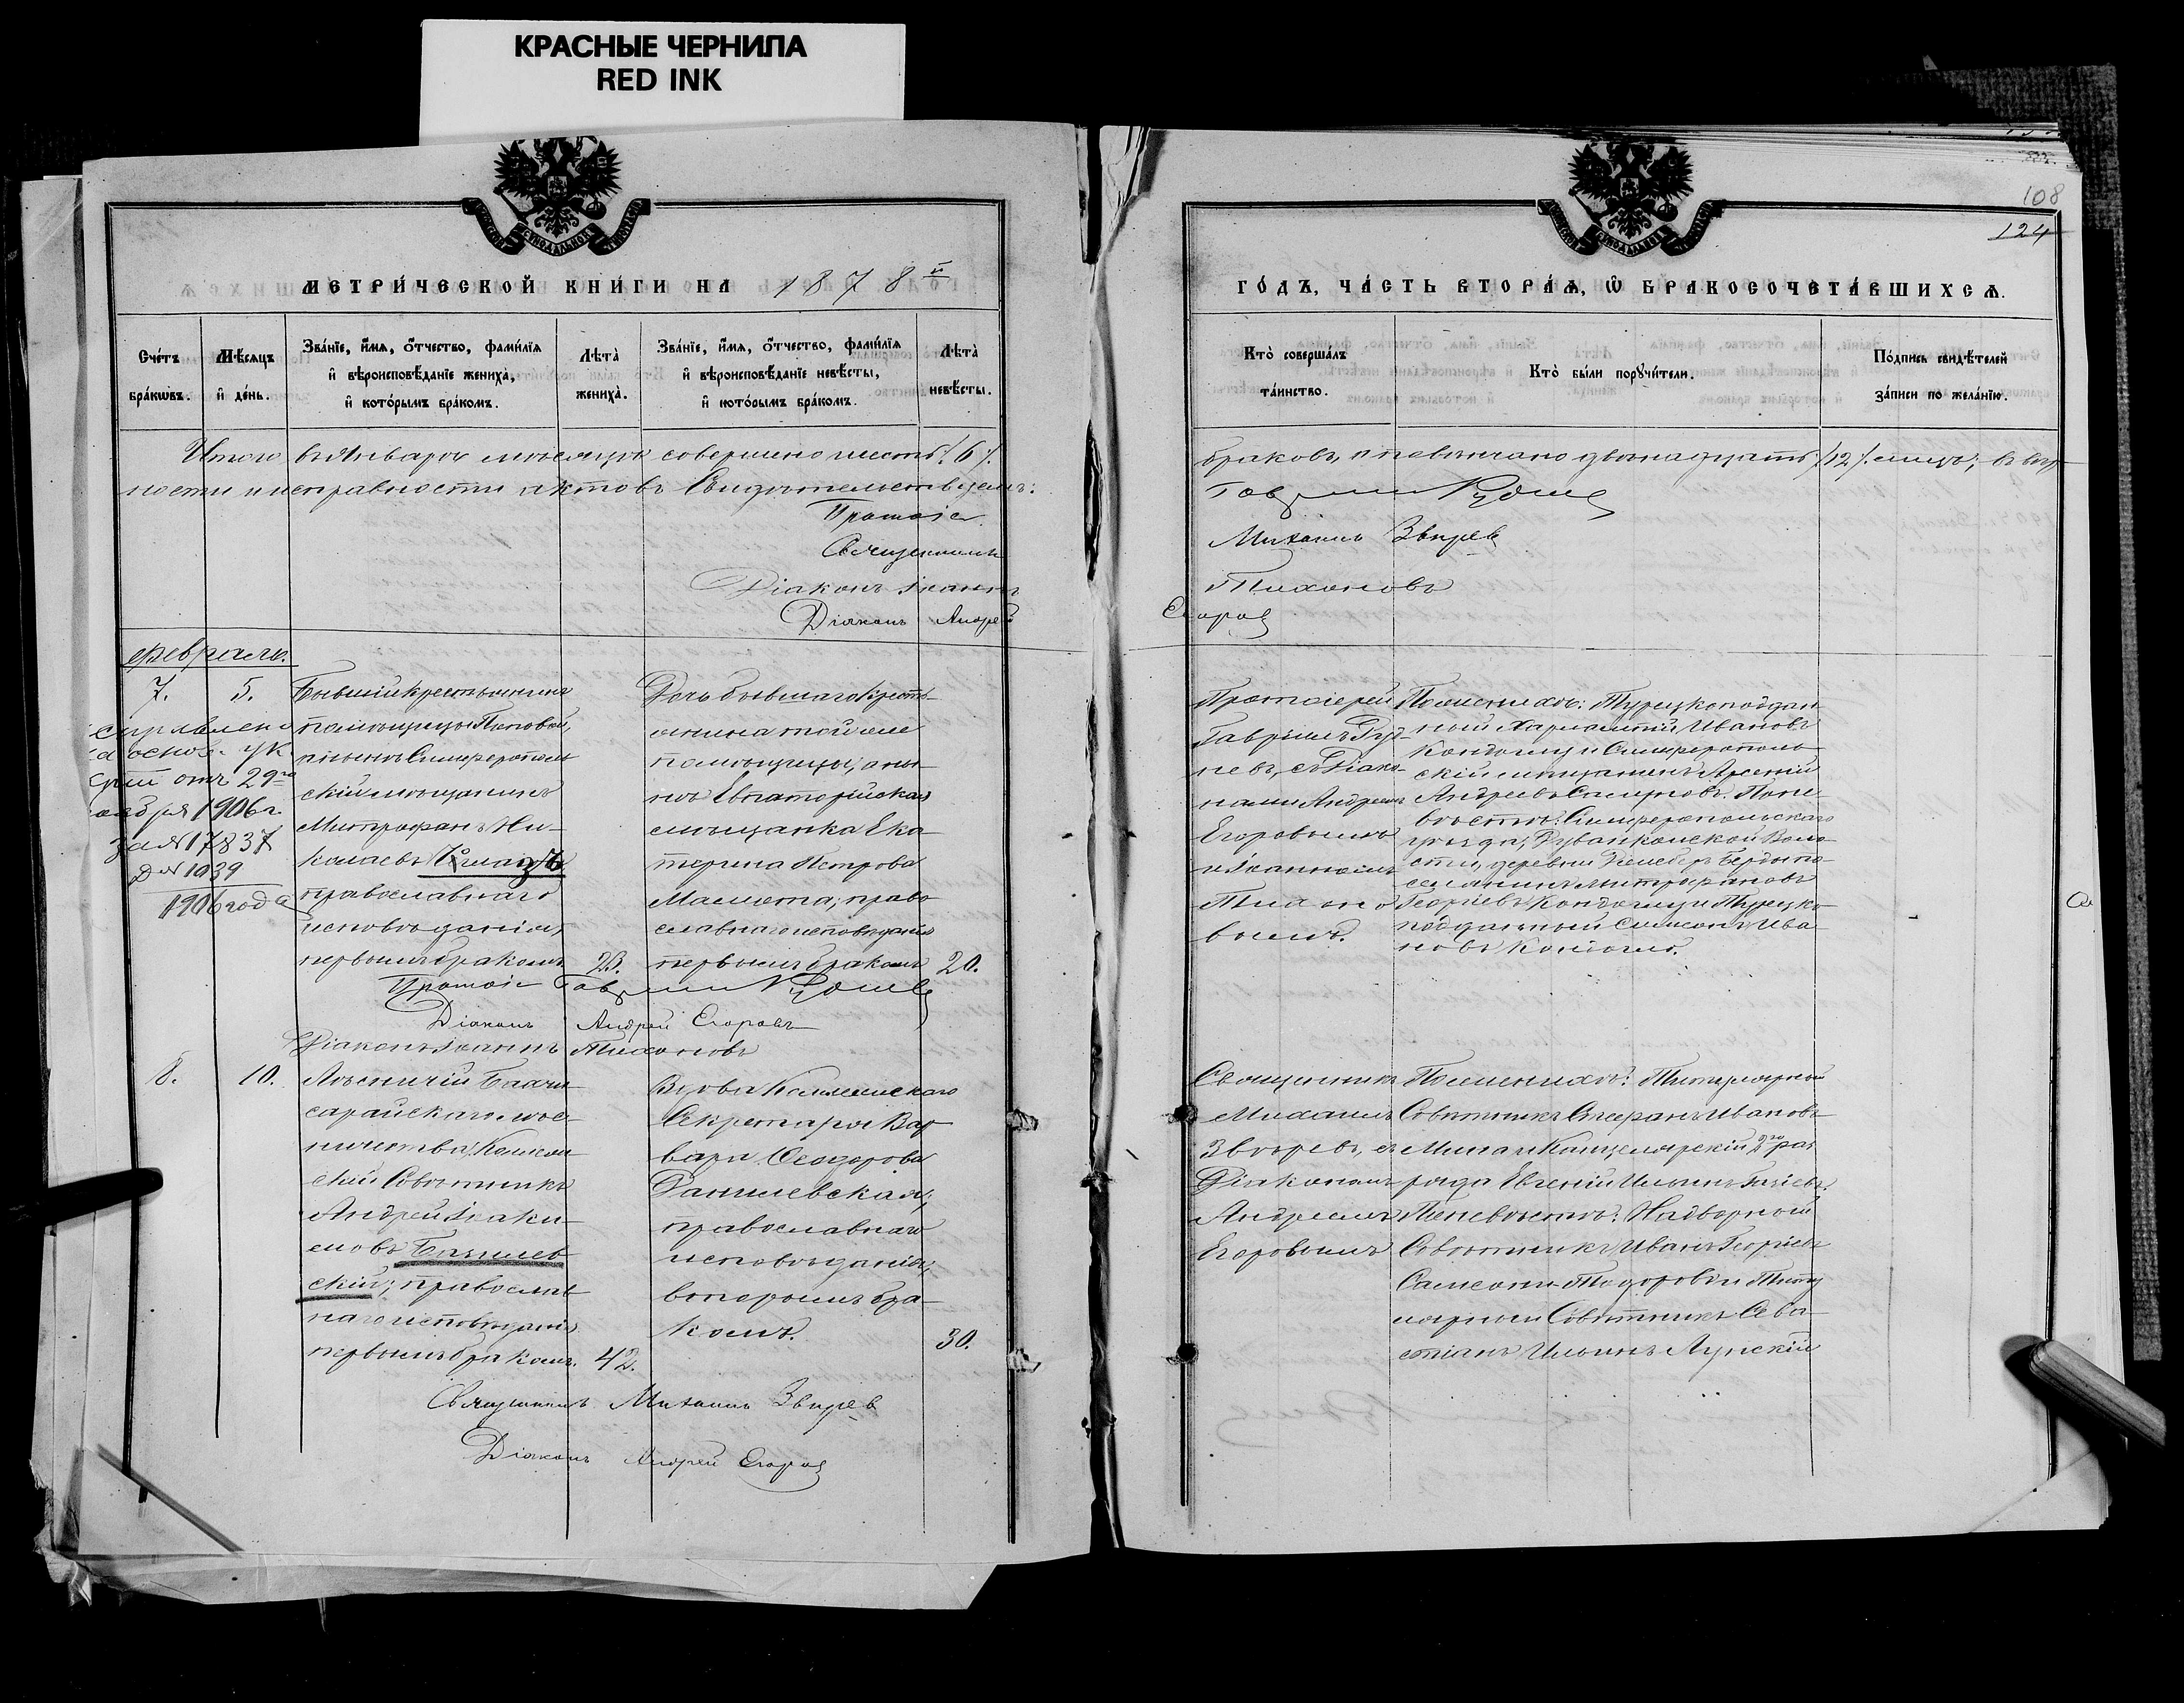 КРАСНЫЕ ЧЕРНИЛА
RED INK
108
124
МЕТРИ́ЧЕСКОЙ КНИ́ГИ НА 1878й
ГО́ДЪ, ЧА́СТЬ ВТОРА́Я, Ѡ БРАКОСОЧЕТА́ВШИХСЯ.
Сче́тъ бра́кѡвъ.
Мѣ́сяцъ и де́нь.
Зва́нїе, и́мя, о́тчество, фами́лїя
и вѣроисповѣ́данїе жениха̀,
и кото́рымъ бра́комъ.
Лѣта̀ жениха̀.
Зва́нїе, и́мя, о́тчество, фами́лїя
и вѣроисповѣ́данїе невѣ́сты,
и кото́рымъ бра́комъ.
Лѣта̀ невѣ́сты.
Кто̀ соверша́лъ
та́инство.
Кто̀ бы́ли пору́чи́тели.
По́дпись свидѣ́телей
за́писи по жела́нїю.
Итого въ Январѣ мѣсяцѣ совершено шесть /6/.
браковъ, повѣнчано двѣнадцать /12/ лицъ; въ вѣр-
ности и исправности актовъ Свидѣтельствуемъ:
Протоіе.
Гавриил Руднев
Священникъ
Михаилъ Звѣревъ
Діаконъ Іоаннъ
Тихоновъ
Діаконъ Андрей
Егоров
Февраль.
7.
5.
Бывшій крестьянинъ
помѣщицы Поповой,
нынѣ Симферополь
скій мѣщанинъ
Митрофанъ Ни-
колаевъ
православнаго
исповѣданія,
первымъ бракомъ
23.
Дочь бывшаго крест-
янина той же
помѣщицы, а ны-
нѣ Евпаторійская
мѣщанка Ека-
терина Петрова
православ
славнаго исповѣданія
первымъ бракомъ
20.
основ. ук
отъ 29го
1906 г.
за № 17837
Д № 1039
1906 года
Протоіерей
Гавріилъ Руд-
невъ, съ Діако-
нами Андреемъ
Егоровымъ
и Іоанномъ
Тихоно
вымъ.
По женихѣ: Турецкоподдан
ный Харлампій Ивановъ
и Симферополь
скій мѣщанинъ Арсеній
Андреевъ Смирновъ. По не
вѣстѣ: Симферопольскаго
уѣзда, Воло
сти, деревни
поселянинъ Митрофановъ
Георгіевъ и Турецко
подданный Симеонъ Ива
новъ
Протоіе Гавриил Руднев
Діаконъ Андрей Егоровъ
Діаконъ Іоаннъ Тихоновъ
8.
10.
Лѣсничій Бахчи
сарайскаго лѣс-
ничества, Коллеж
скій Совѣтникъ
Андрей Іоаки-
мовъ Базилев
скій; православ
наго исповѣданія
первымъ бракомъ.
42.
Вдова Коллежскаго
Секретаря Вар
вара Ѳеодорова
Данилевская;
православнаго
исповѣданія;
вторымъ бра-
комъ.
30.
Священникъ
Михаилъ
Звѣревъ, съ
Діакономъ
Андреемъ
Егоровымъ
По женихѣ: Титулярный
Совѣтникъ Стефанъ Ивановъ
Канцелярскій 2го раз
ряда Евгеній Ильинъ
По невѣстѣ: Надворный
Совѣтникъ Иванъ Георгіевъ
и Титу
лярный Совѣтникъ Сева
стіанъ Ильинъ Лупскій
Священникъ Михаилъ Звѣревъ
Діаконъ Андрей Егоров